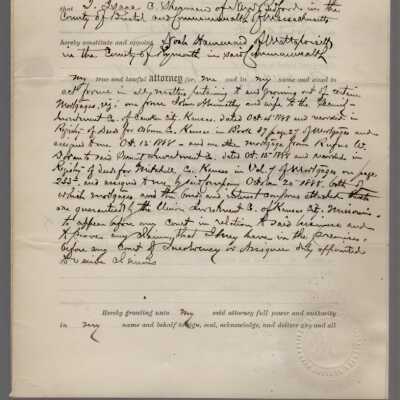 that I, Isaac C. Sherman of New Bedford in the
County of Bristol and Commonwealth of Massachusetts
hereby constitute and appoint Noah Hammond of Mattapoisett
in the County of Plymouth in said Commonwealth
my true and lawful attorney for me and in my name and stead to
act for me in all matters pertaining to and growing out of certain
Mortgages, viz: one from John and wife to the
Investment Co. of Kansas. dated Oct 1st 1888 and recorded in
Registry of Deeds for Osborne Co. Kansas in Book page 27 of Mortgages and
assigned to me Oct. 12 1888 - and one Mortgage from Rufus W.
to said Investment Co. dated Oct. 15 1888 and recorded in
Registry of Deeds for Mitchell Co. Kansas in Vol. of Mortgages on page
and assigned to me by said company October 20 1888, both of
which mortgages and the bonds and interest coupons attached
are guaranteed by the Union Investment Co. of Kansas City, Missouri.
to appear before any Court in relation to said and
to prove any claims that I may have in the premises,
before any Court of Insolvency or Assignee duly appointed
to claims
Hereby granting unto my said attorney full power and authority
in my name and behalf to sign, seal, acknowledge, and deliver any and all